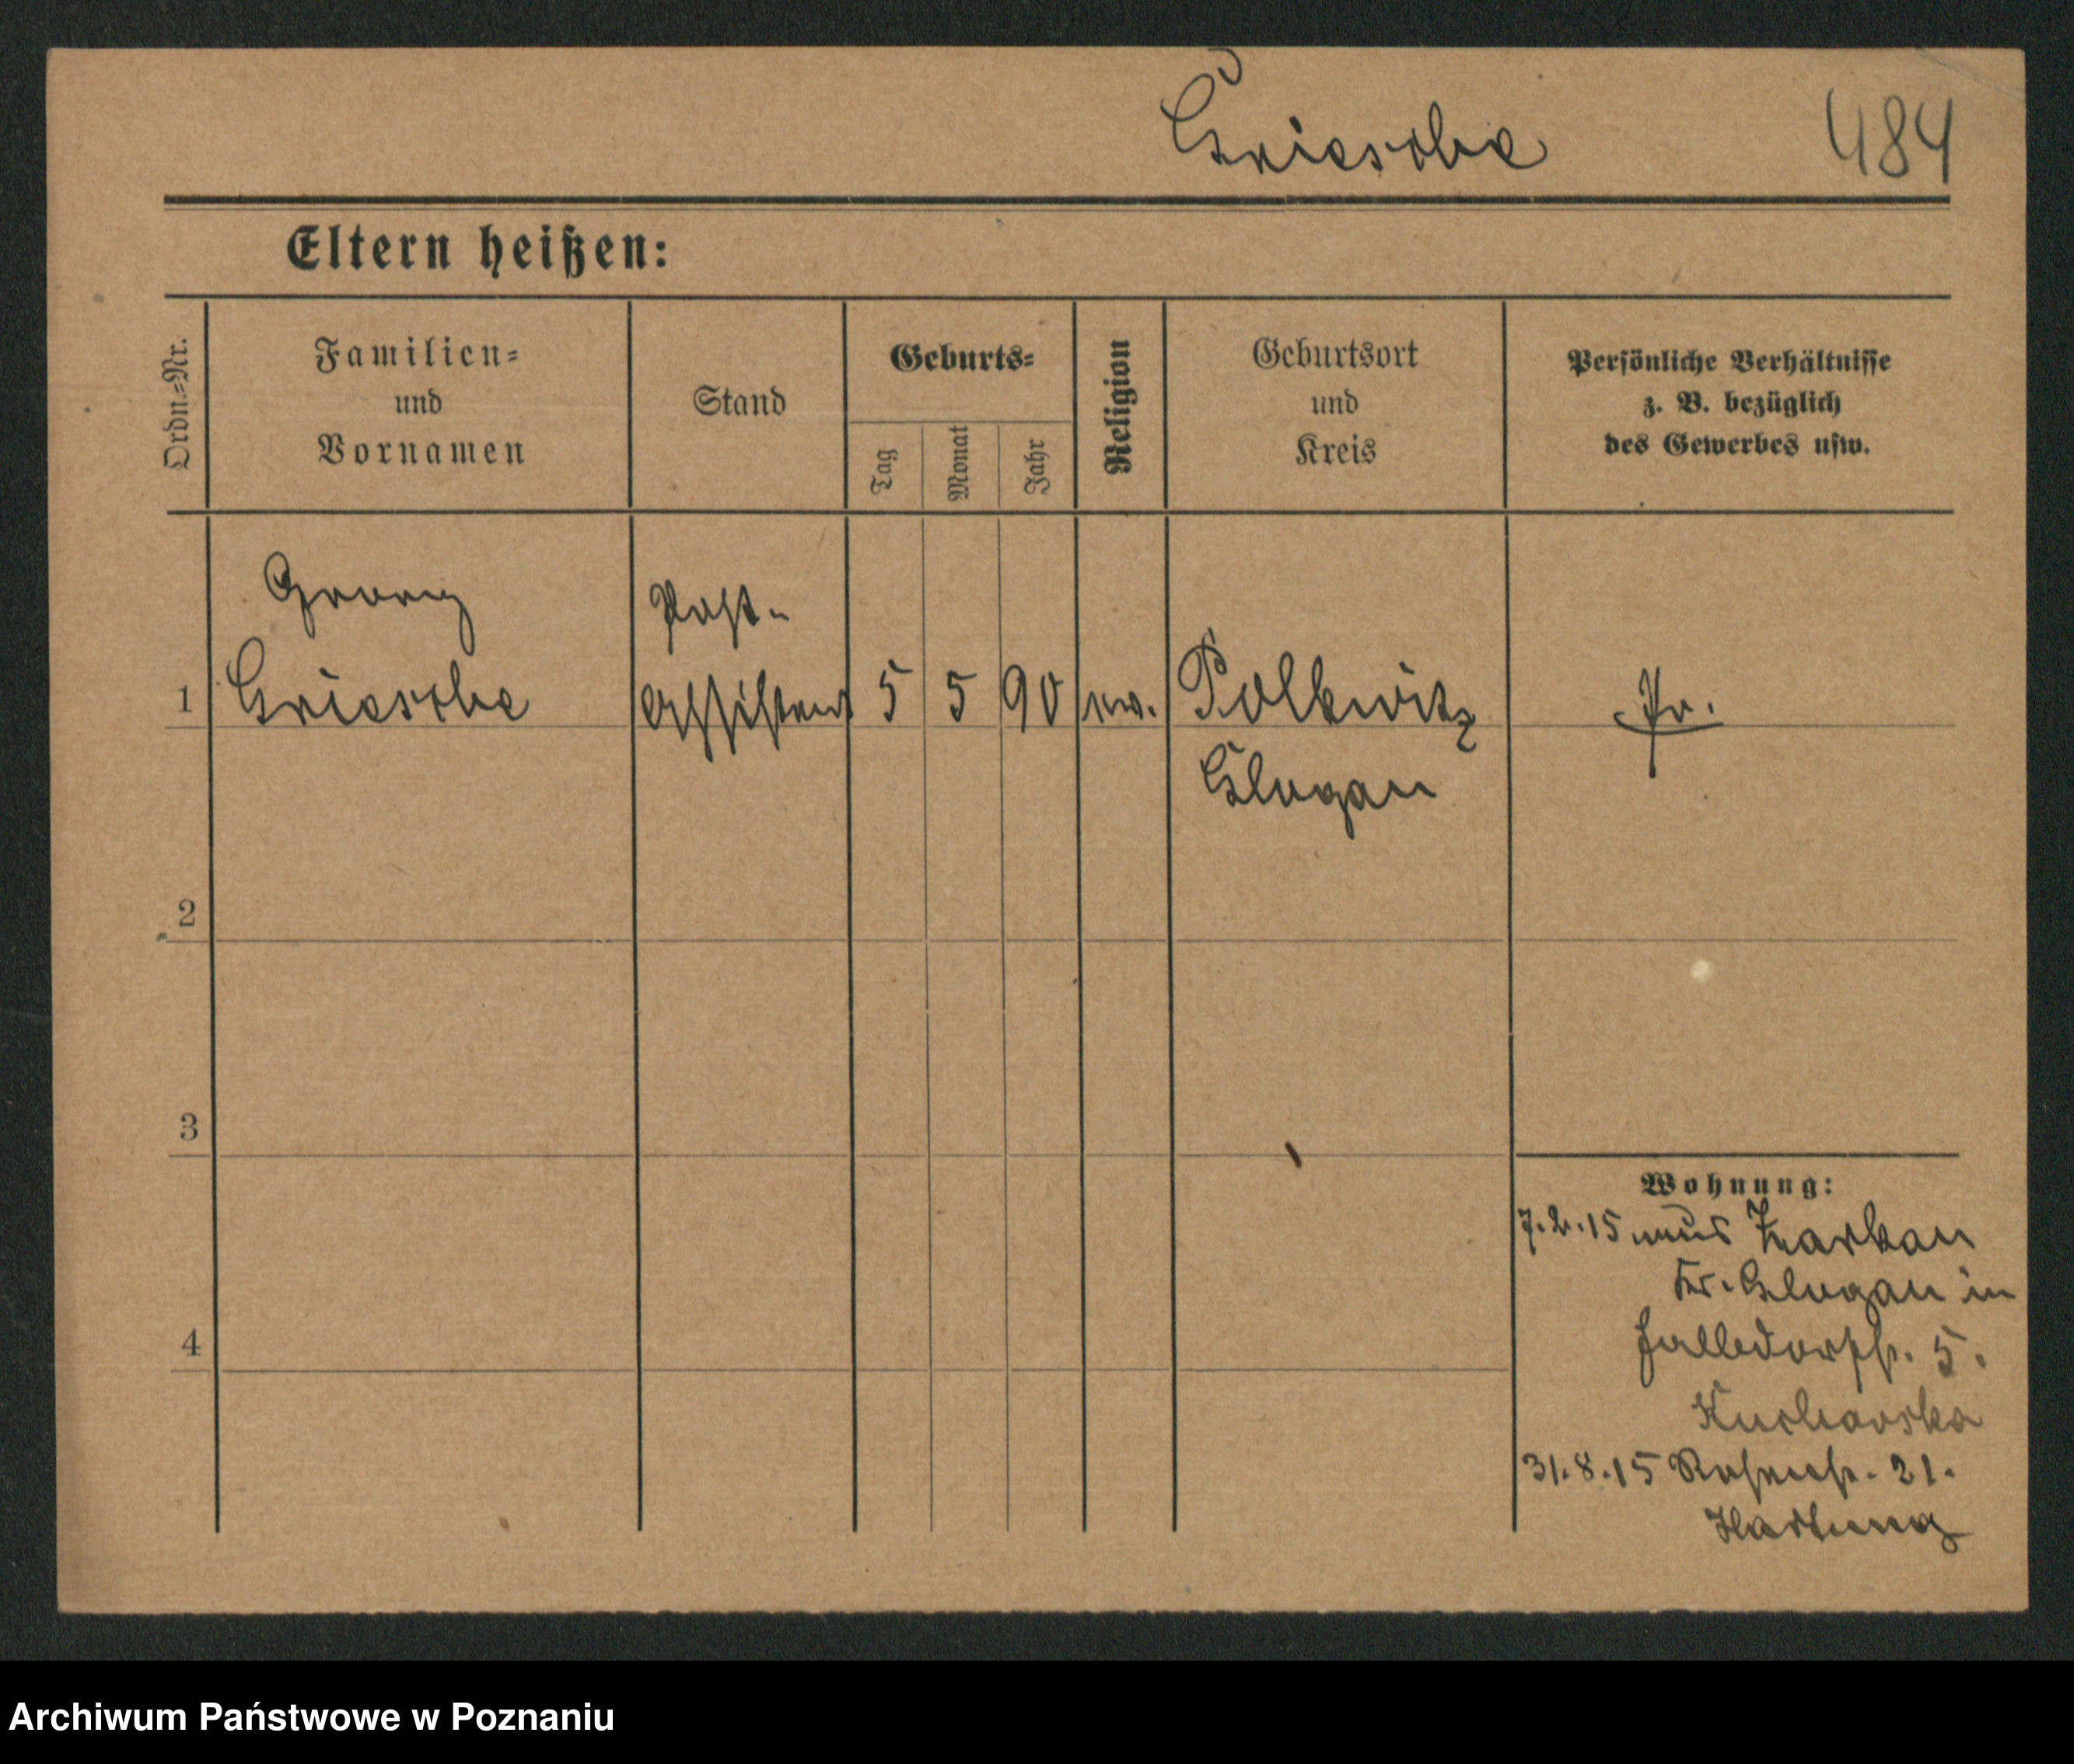 Griesche 484
Eltern heißen:
Ordn.=Nr.
Familien=
und
Vornamen
Stand
Geburts=
Tag
Monat
Jahr
Religion
Geburtsort
und
Kreis
Persönliche Verhältnisse
z. B. bezüglich
des Gewerbes usw.
Georg
Post-
1 Griesche Assistent 5 5 90 ev. Polkwitz Pr.
Glogau
2
3
4
Wohnung:
7.2.15 aus Zarkau
Kr. Glogau in
5.
Kucharska
31.8.15 21.
Hartung
Archiwum Państwowe w Poznaniu